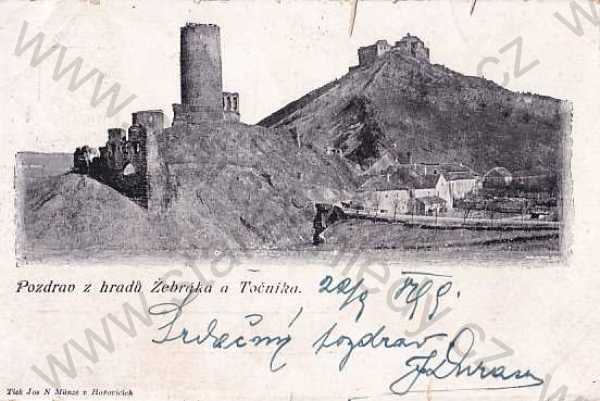 Pozdrav z hradů Žebráka a Točníka.
Srdečný pozdrav
Tisk Jos N Münze v Hořovicích
www.stare-pohledy.cz